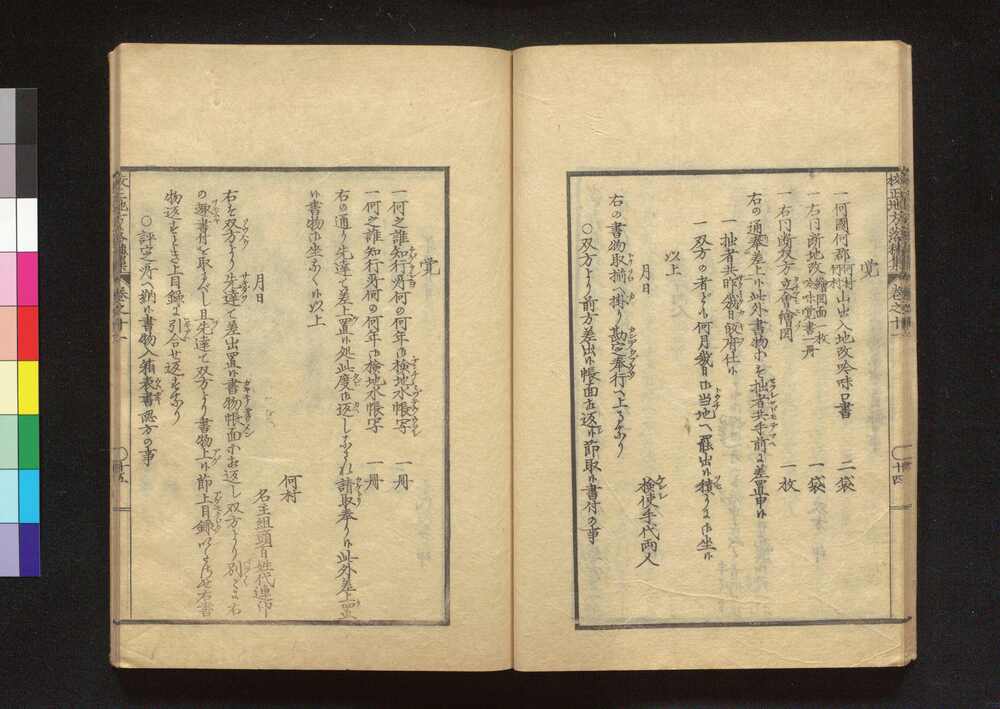 校正地方落穂集 巻之十一 十四
覚
一何國何郡何村何村山出入地改吟味口書 二袋
一右同断地改繪図面一枚吟味覚書一冊 一袋
一右同断双方立會繪図 一枚
右の通奉差上候此外書物等を拙者共手前に差置申候
一拙者共昨幾日取片仕候
一双方の者ども何月幾日に当地へ罷出候積りに御座候
以上
月日
検使手代両人
右の書物取揃へ掛り勘定奉行へ上るなり
○双方より前方差出候帳面相返候節取候書付の事
覚
一何之誰知行所何の何年御検地水帳写 一冊
一何之誰知行所何の何年御検地水帳写 一冊
右の通り先達て差上置候処此度御返し被成下請取奉り候此外差上置
候書物御坐なく候以上
月日
何村
名主組頭百姓代連印
右を双方より先達て差出置候書物帳面等相返し双方より別々に右
の趣書付を取るべし且先達て双方より書物上候節上目録いたさせ右書
物返すとき上目録に引合せ返すなり
○評定所へ納候書物入箱表書認方の事
巻之十一 十五